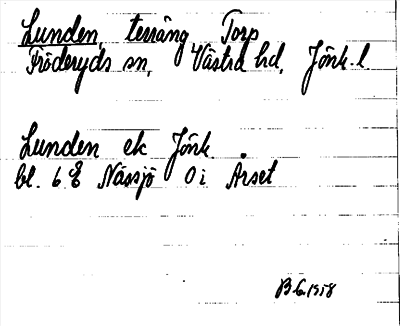 Lunden, terräng Torp
Fröderyds sn, Västra hd, Jönk. l
Lunden ek Jönk.
bl. 6 E Nässjö Oi Årset
B G. 1958